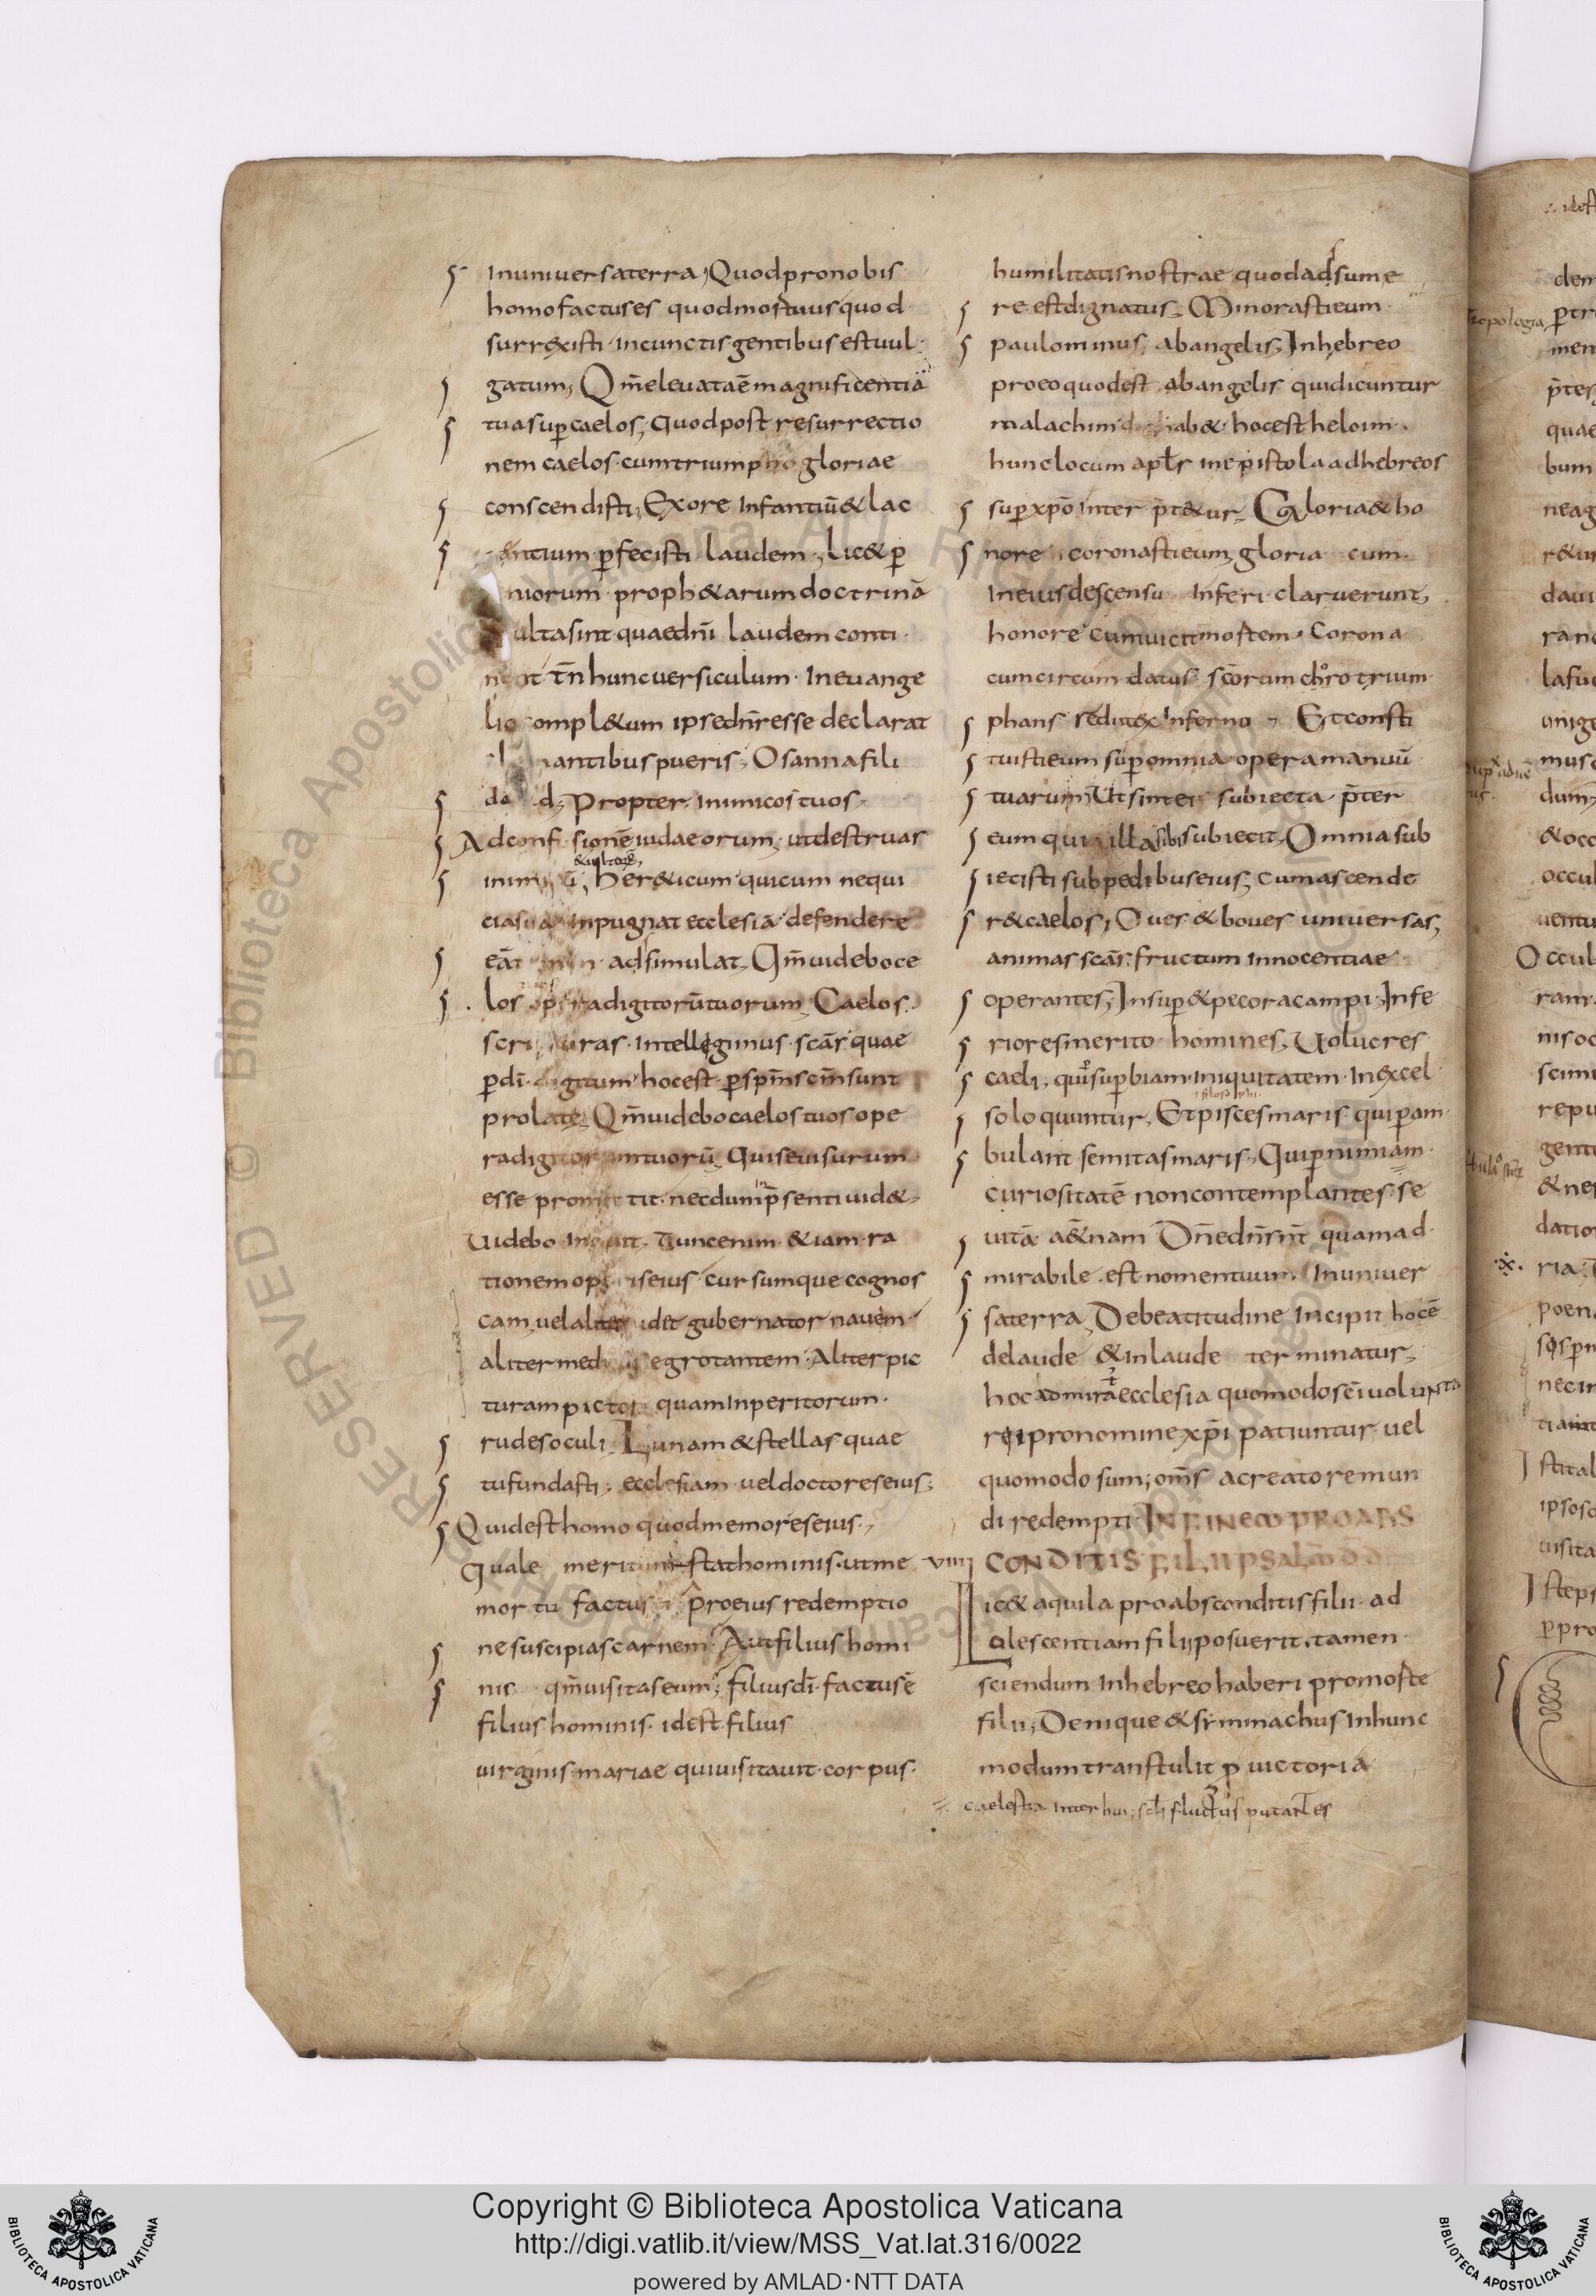 In uniuersa terra, Quod pro nobis
homo factus es quod mortuus quod
surrexisti in cunctis gentibus est uul
gatum, Qm̄ eleuata ē magnificentia
tua sup̄ caelos, Quod post resurrectio
nem caelos cum triumpho gloriae
conscendisti, Ex ore infantiū & lac
antium p̄fecisti laudem, lic& p̄
niorum proph&arum doctrinā
ulta sint quae dn̄i laudem conti
tn̄ hunc uersiculum in euange
lio compl&um ipse dn̄s esse declarat
antibus pueris, Osanna fili
d, Propter inimicos tuos
Ad conf sionē iudaeorum, ut destruas
& ultorē,
her&icum qui cum nequi
cia sua inpugnat ecclesiā defendere
eā adsimulat, Qm̄ uidebo ce
los opera digitorū tuorum, Caelos
scripturas intellegimus scās quae
p̄ dī digitum hoc est p̄ spm̄ scm̄ sunt
prolate, Qm̄ uidebo caelos tuos ope
ra digitorum tuorū, Qui se uisurum
esse promittit necdum in p̄senti uid&,
Uidebo inquit, Tunc enim &iam ra
tionem operis eius cursumque cognos
cam, uel aliter uidet gubernator nauem
aliter medicus egrotantem Aliter pic
turam pictor quam inperitorum
rudes oculi, Lunam & stellas quae
tu fundasti, ecclesiam uel doctores eius;
Quid est homo quod memor es eius,
Quale meritum stat hominis ut me
mor tu factus pro eius redemptio
ne suscipias carnem, Aut filius homi
nis qm̄ uisitas eum; filius dī factus ē
filius hominis id est filius
uirginis mariae qui uisitauit corpus
humilitatis nostrae quod adsume
re est dignatus, Minorasti eum
paulo minus ab angelis, In hebreo
pro eo quod est ab angelis qui dicuntur
malachim hab& hoc est heloim
hunc locum apls in epistola ad hebreos
sup̄ xp̄o interp̄t&ur, Gloria & ho
nore coronasti eum, gloria cum
In eius descensu inferi claruerunt,
honore cum uicit mortem, Corona
cum circumdatus scōrum choro trium
phans redit ex inferno, Et consti
tuisti eum sup̄ omnia opera manuū
tuarum, Ut sint ei subiecta p̄ter
eum qui illa sibi subiecit, Omnia sub
iecisti sub pedibus eius, cum ascende
r& caelos, Oues & boues uniuersas,
animas scās fructum innocentiae
operantes, Insup̄ & pecora campi, Infe
riores merito homines, Uolucres
caeli, qui p̄ sup̄biam iniquitatem in excel
so loquuntur, Et pisces maris qui p̄am
bulant semitas maris, Qui p̄ nimiam
curiositatē non contemplantes se
uitā a&nam Dn̄e dn̄s nr̄ quam ad
mirabile est nomen tuum In uniuer
sa terra, De beatitudine incipit hoc ē
de laude & in laude terminatur,
hoc admirā ecclesia quomodo sc̄i uolunta
rei pro nomine xp̄i patiuntur uel
quomodo sumus om̄s a creatore mun
di redempti. IN FINEM PRO ABS
VIIII CONDITIS FILII PSALM D D
Lic& aquila pro absconditis filii ad
olescentiam filii posuerit, tamen
sciendum In hebreo haberi pro morte
filii; Denique & symmachus in hunc
modum transtulit p̄ uictoria
caelestia inter hui sclī fluctus putantes
tropologia
Copyright © Biblioteca Apostolica Vaticana
http://digi.vatlib.it/view/MSS_Vat.lat.316/0022
powered by AMLAD·NTT DATA